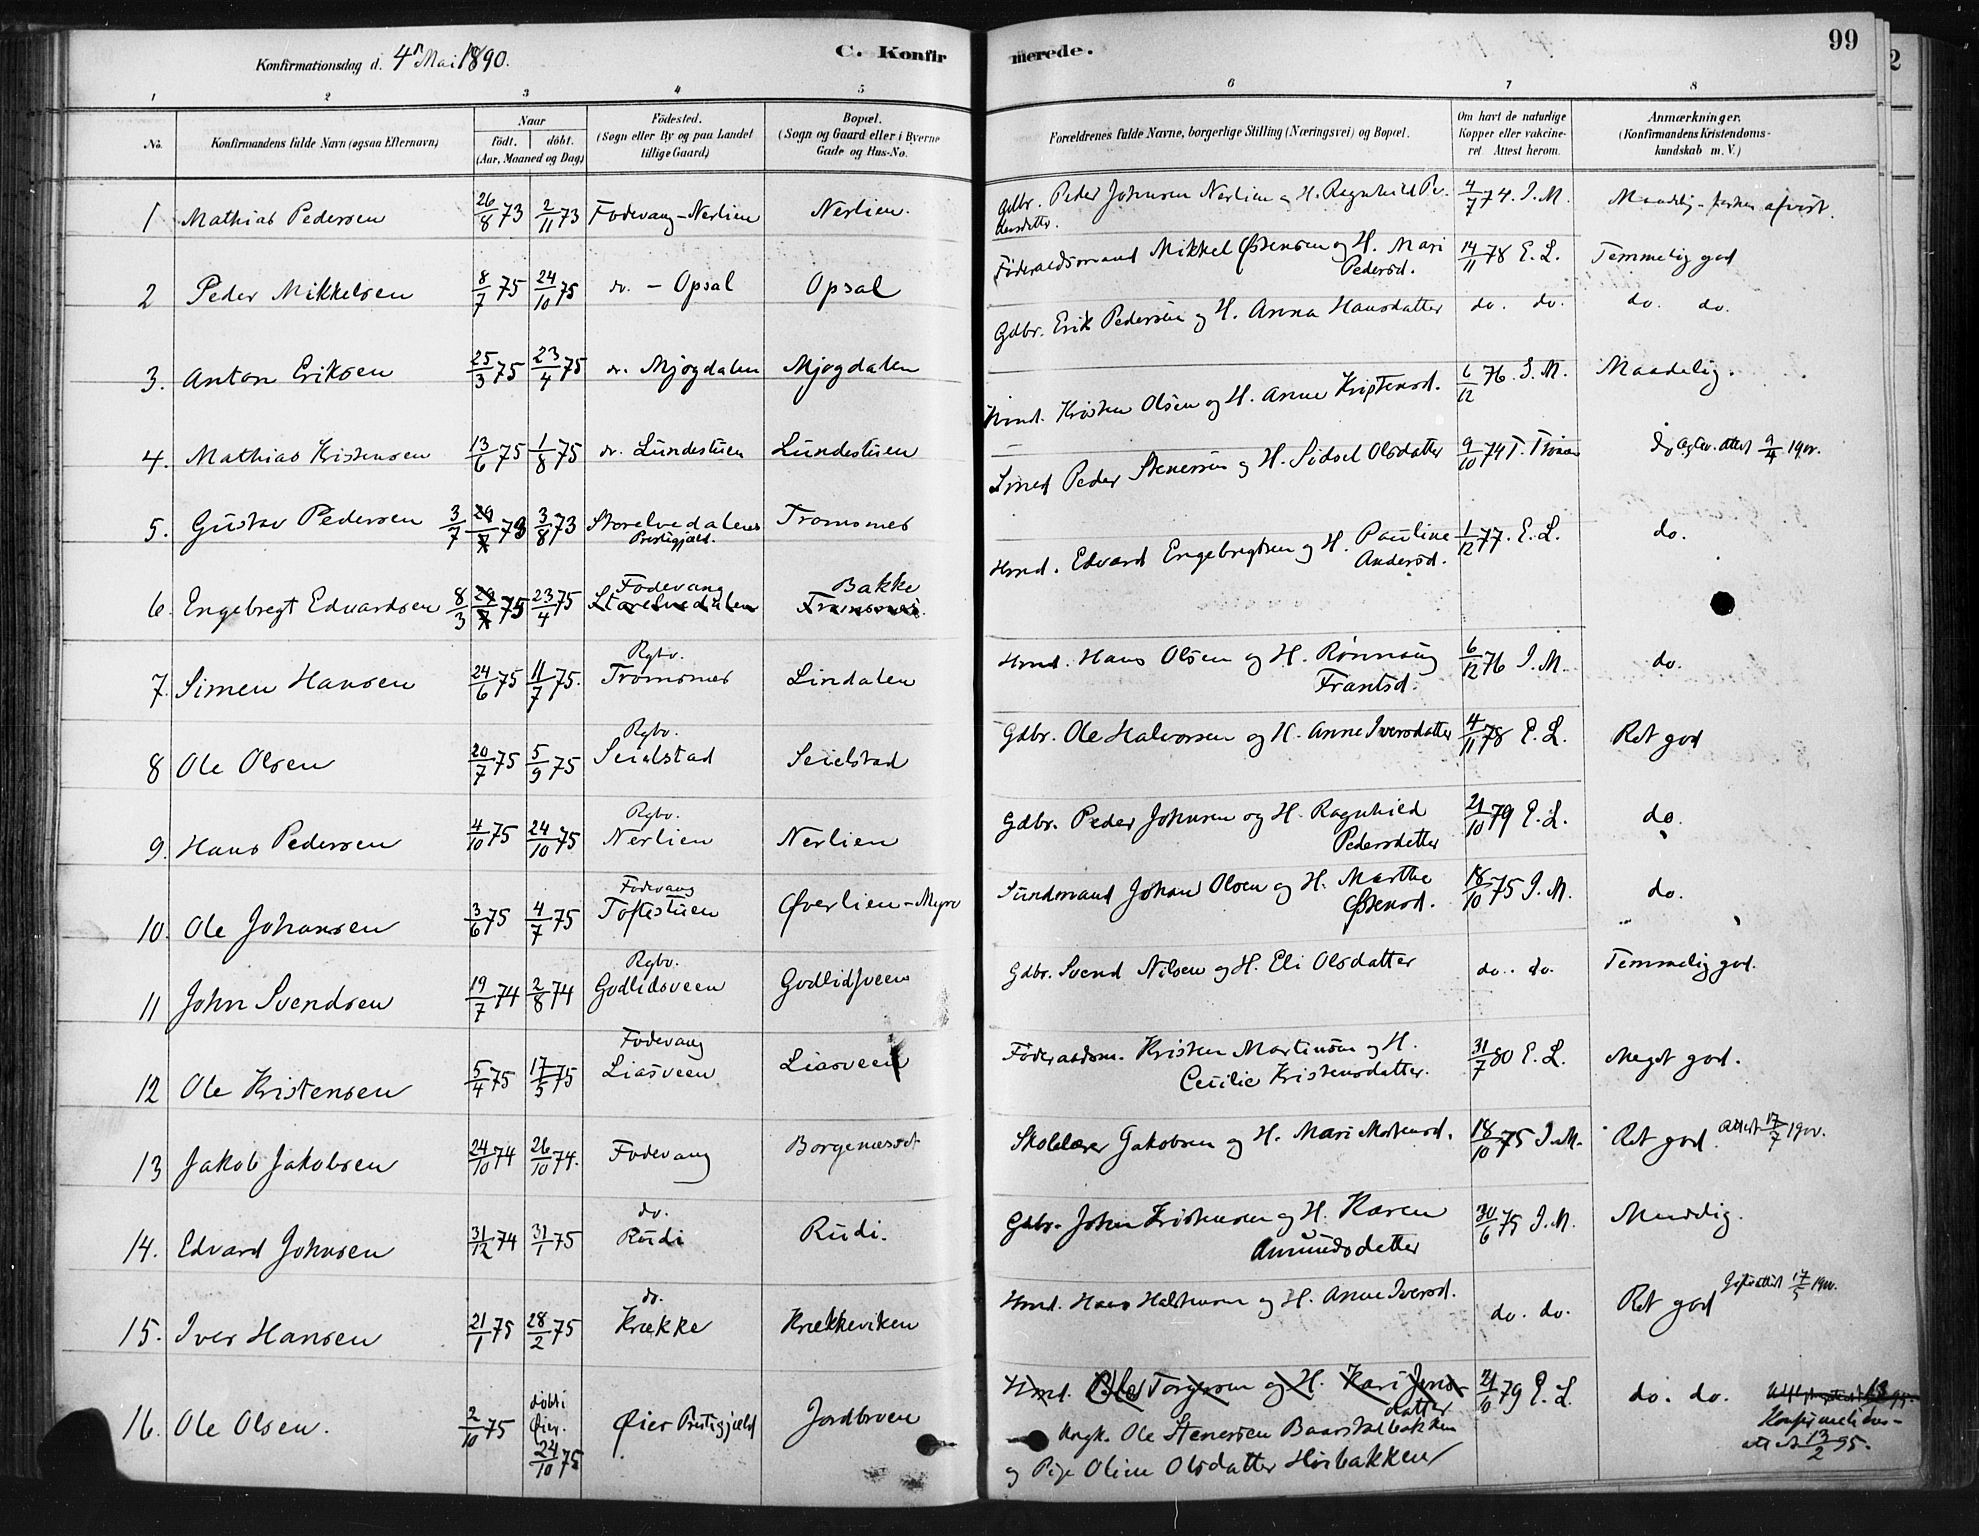 Konfirmationsdag d. 4de Mai 1890.
C. Konfirmerede.
99
1 2 3 4 5 6 7 8
No.
Konfirmandens fulde Navn (ogsaa Efternavn)
Naar
født. døbt.
(Aar, Maaned og Dag)
Fødested.
(Sogn eller By og paa Landet
tillige Gaard)
Bopæl.
(Sogn og Gaard eller i Byerne
Gade og Hus-No.
Forældrenes fulde Navne, borgerlige Stilling (Næringsvei) og Bopæl.
Om havt de naturlige
Kopper eller vakcine-
ret Attest herom.
Anmærkninger.
(Konfirmandens Kristendoms-
kundskab m. V.)
1 Mathias Pedersen 26/8 73 2/11 73 Fodevang - Nerlien Nerlien. Gdbr. Peder Johnsen Nerlien og H. Ragnhild Pe-
dersdatter. 4/7 74. I. M. Maadelig
2 Peder Mikkelsen 8/7 75 24/10 75 do. - Opsal Opsal Føderaadsmand Mikkel Østensen og H. Mari
Pedersd. 14/11 78 E. L. Temmelig god
3. Anton Eriksen 25/3 75 23/4 75 do. Mjøgdalen Mjøgdalen Gdbr. Erik Pedersen og H. Anna Hansdatter do. do. do. do.
4. Mathias Kristensen 13/6 75 1/8 75 do. Lundestuen Lundestuen Hmd. Kristen Olsen og H. Anne Kristensd. 6/12 76. I. M. Maadelig.
5. Gustav Pedersen 3/7 73 3/8 73 Storelvedalens
Prestegjæld. Tromsnes Smed Peder Stenersen og H. Sidsel Olsdatter 9/10 74 do 9/4 19
6. Engebregt Edvardsen 8/3 75 23/4 75 Fodevang
Storelvedalen Bakke
Tromsnes Hmd. Edvard Engebregtsen og H. Pauline
Andersd. 1/12 77. E. L. do.
7. Simen Hansen 24/6 75 11/7 75. Rgbo.
Tromsnes Lindalen Hmd. Hans Olsen og H. Rønnaug
Frantsd. 6/12 76 I. M. do.
8 Ole Olsen 20/7 75 5/9 75 Rgbo.
Seielstad Seielstad Gdbr. Ole Halvorsen og H. Anne Iversdatter 4/11 78 E. L. Ret god
9. Hans Pedersen 4/10 75 24/10 75 Rgbo.
Nerlien Nerlien Gdbr. Peder Johnsen og H. Ragnhild
Pedersdatter 21/10 79 E. L. do.
10. Ole Johansen 3/6 75 4/7 75 Fodevang
Toftestuen Øverlien - Myro Sundmand Johan Olsen og H. Marthe
Østensd. 18/10 75 I. M. do.
11 John Svendsen 19/7 74 2/8 74 Rgbo.
Godlidsveen Godlidsveen Gdbr. Svend Nilsen og H. Eli Olsdatter do. do. Temmelig god.
12 Ole Kristensen 5/4 75 17/5 75 Fodevang
Liasveen Liasveen Føderaadsm. Kristen Martinsen og H.
Cecilie Kristensdatter. 31/7 80 E. L. Meget god.
13 Jakob Jakobsen 24/10 74 26/10 74. Fodevang Borgenæsset Skolelærer Jakobsen og H. Mari Mortensd. 18/10 75 I. M. Ret god. Attest 17/7 19
14. Edvard Johnsen 31/12 74 31/1 75 do.
Rudi Rudi. Gdbr. John Kristensen og H. Karen
Amundsdatter 30/6 75 I. M. Maadelig.
15. Iver Hansen 21/1 75 28/2 75 do.
Krække Krækkeviken Hmd. Hans Halstensen og H. Anne Iversd. do. do. Ret god 17/5 19
16. Ole Olsen. 2/10 75 døbt i
Øier.
24/10 75 Øier Prestegjæld Jordbroen Hmd. Ole Torgersen og H. Kari Jens-
datter
Ungk. Ole Stenersen Baarstadbakken
og Pige Oline Olsdatter Hørbakken 21/10 79 E. L. do. do.
Konfirmations-
attest 13/2 95.